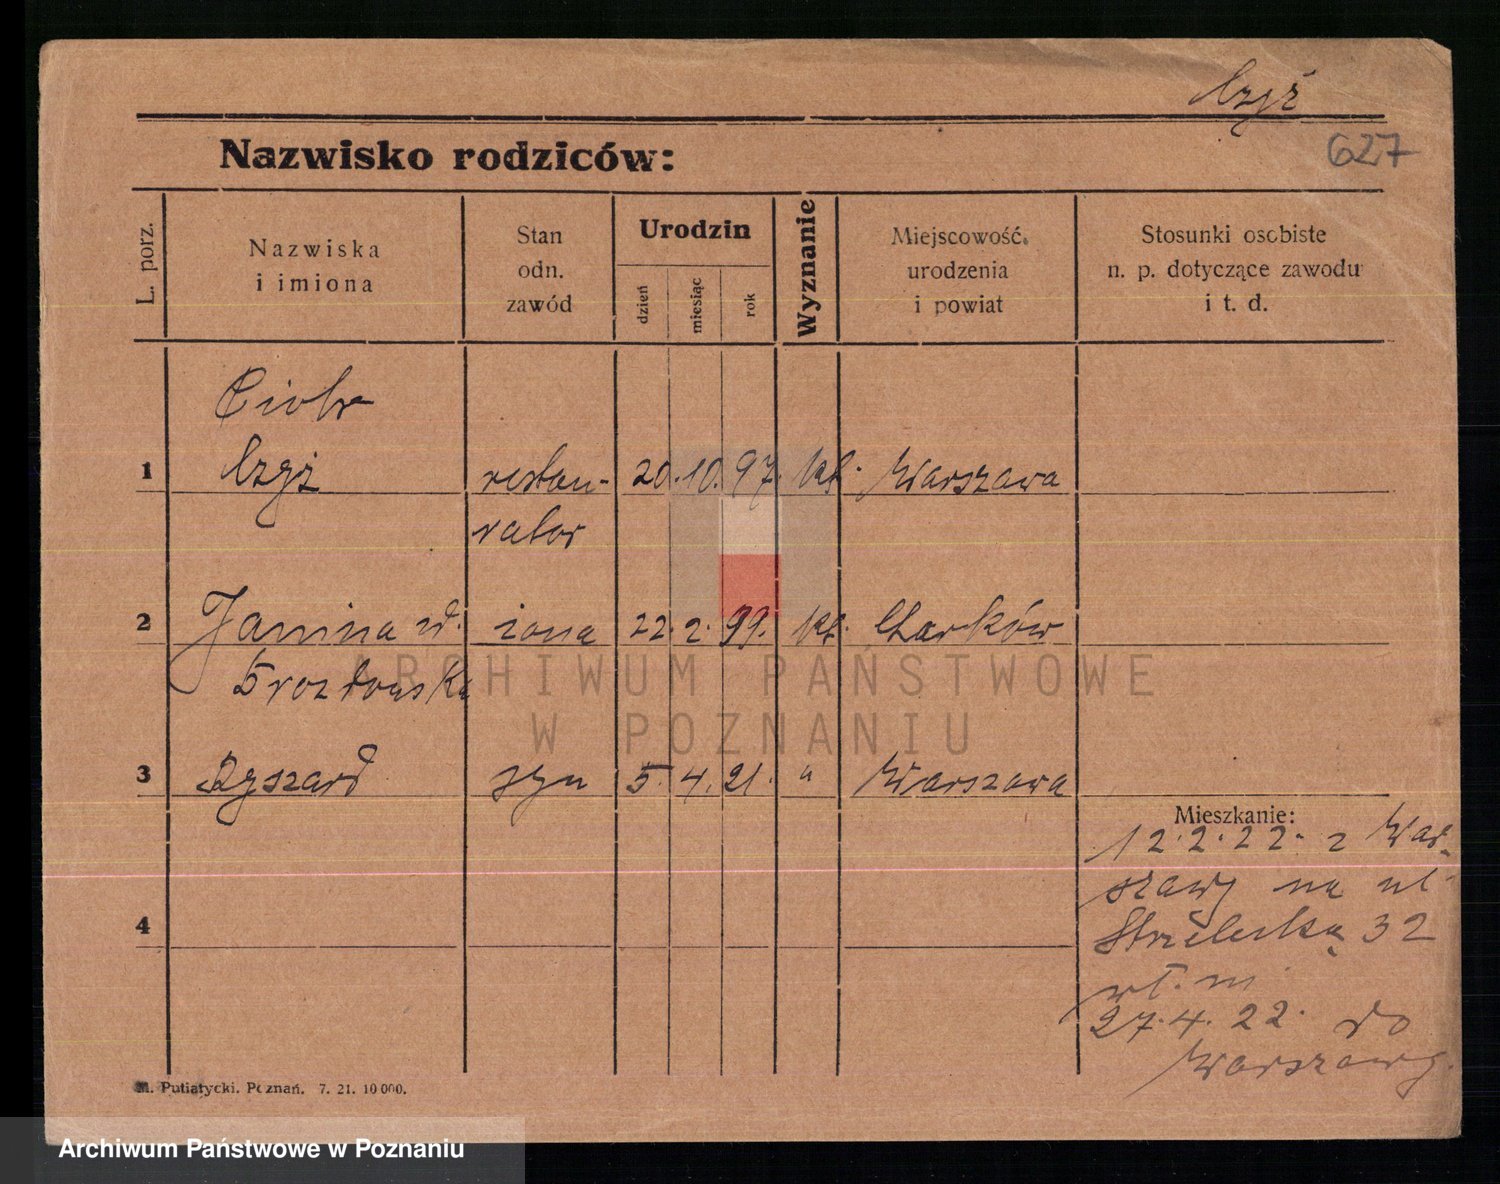 Czyż
627
Nazwisko rodziców:
L. porz.
Nazwiska
i imiona
Stan
odn.
zawód
Urodzin
dzień
miesiąc
rok
Wyznanie
Miejscowość
urodzenia
i powiat
Stosunki osobiste
n. p. dotyczące zawodu
i t. d.
Piotr
1 Czyż restau- 20. 10. 97. kt. Warszawa
rator
2 Janina d. żona 22. 2. 99. kt. Charków
3 Ryszard syn 5. 4. 21. " Warszawa
Mieszkanie:
12.2.22. z War-
szawy na ul.
Strzelecką 32
wł. m.
4
27.4.22. do
Warszawy.
M. Putiatycki. Poznań. 7. 21. 10 000.
ARCHIWUM PAŃSTWOWE
W POZNANIU
Archiwum Państwowe w Poznaniu